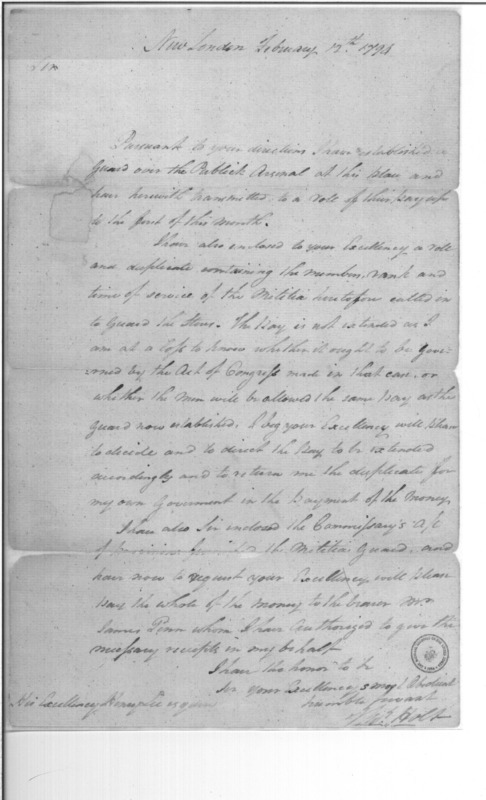 New London February 12th 1794
Sir
Pursuant to your directions I have established a
Guard over the Publick Arsenal at this place and
have herewith transmitted to a roll of their pay up
to the first of this month.
I have also enclosed to your Excellency a roll
and duplicate containing the number, rank and
time of service of the Militia heretofore called in
to Guard the Stores. The Pay is not extended as I
am at a Loss to know whether it ought to be gover-
ned by the Act of Congress made in that case, or
whether the Men will be allowed the same pay as the
guard now established, I beg your Excellency will please
to decide and to direct the Pay to be extended
accordingly and to return me the duplicate for
my own Goverment in the Payment of the Money.
I have also Sir inclosed the Commissary's A/c
of provisions furnished the Militia Guard, and
have now to request your Excellency will please
pay the whole of the money to the bearer Mr
James Penn whom I have Authorized to give the
necessary receipts in my behalf
I have the honor to be
Sir your Excellency's most Obedient
humble servant
Holt
His Excellency